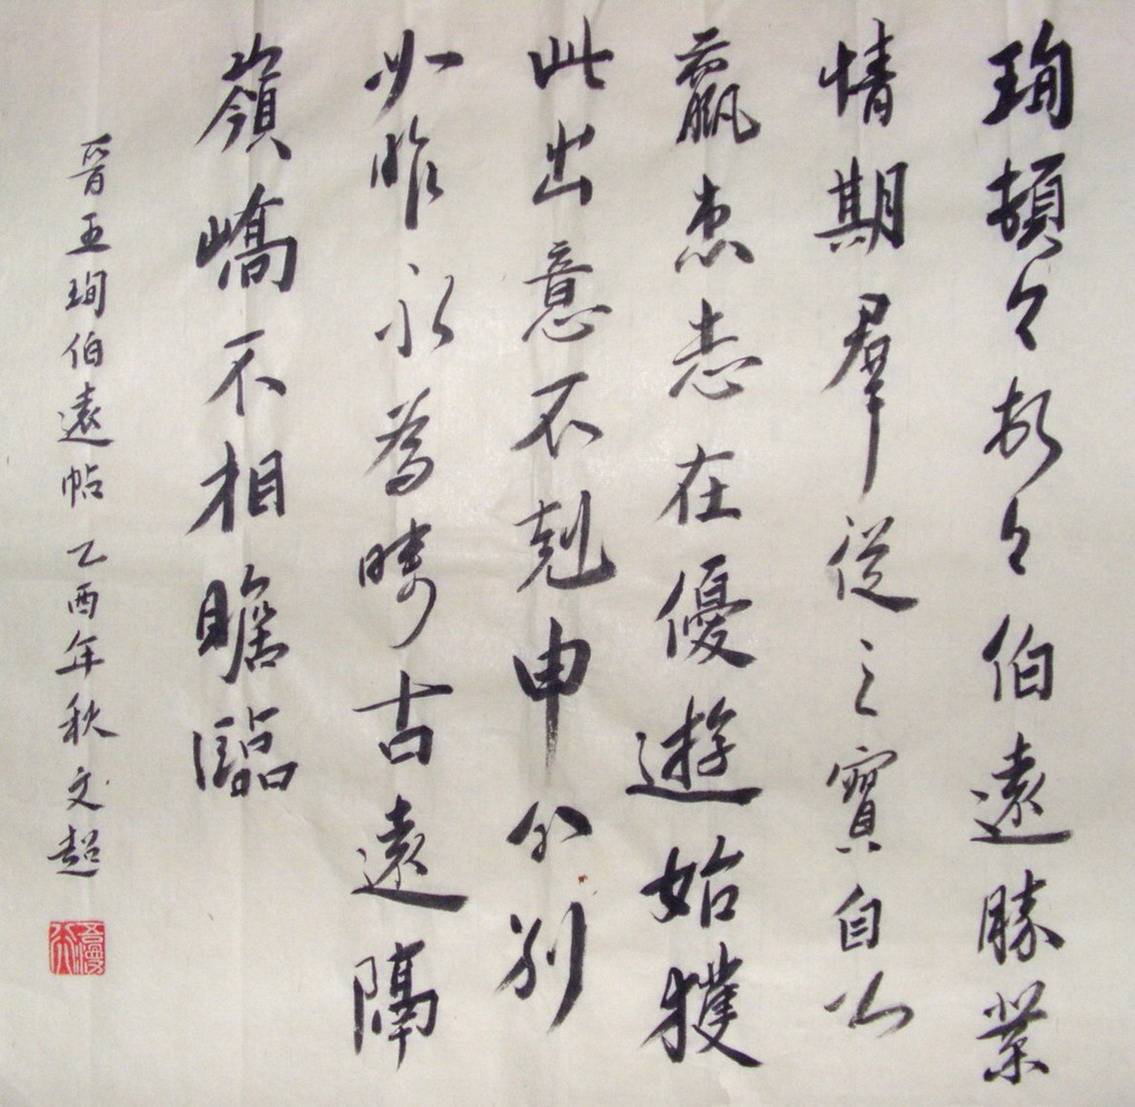 珣頓首頓首伯遠勝業
情期羣從之寶自以
羸患志在優遊始獲
此出意不剋申分別
如昨永為疇古遠隔
嶺嶠不相瞻臨
晉王珣伯遠帖 乙酉年秋文超